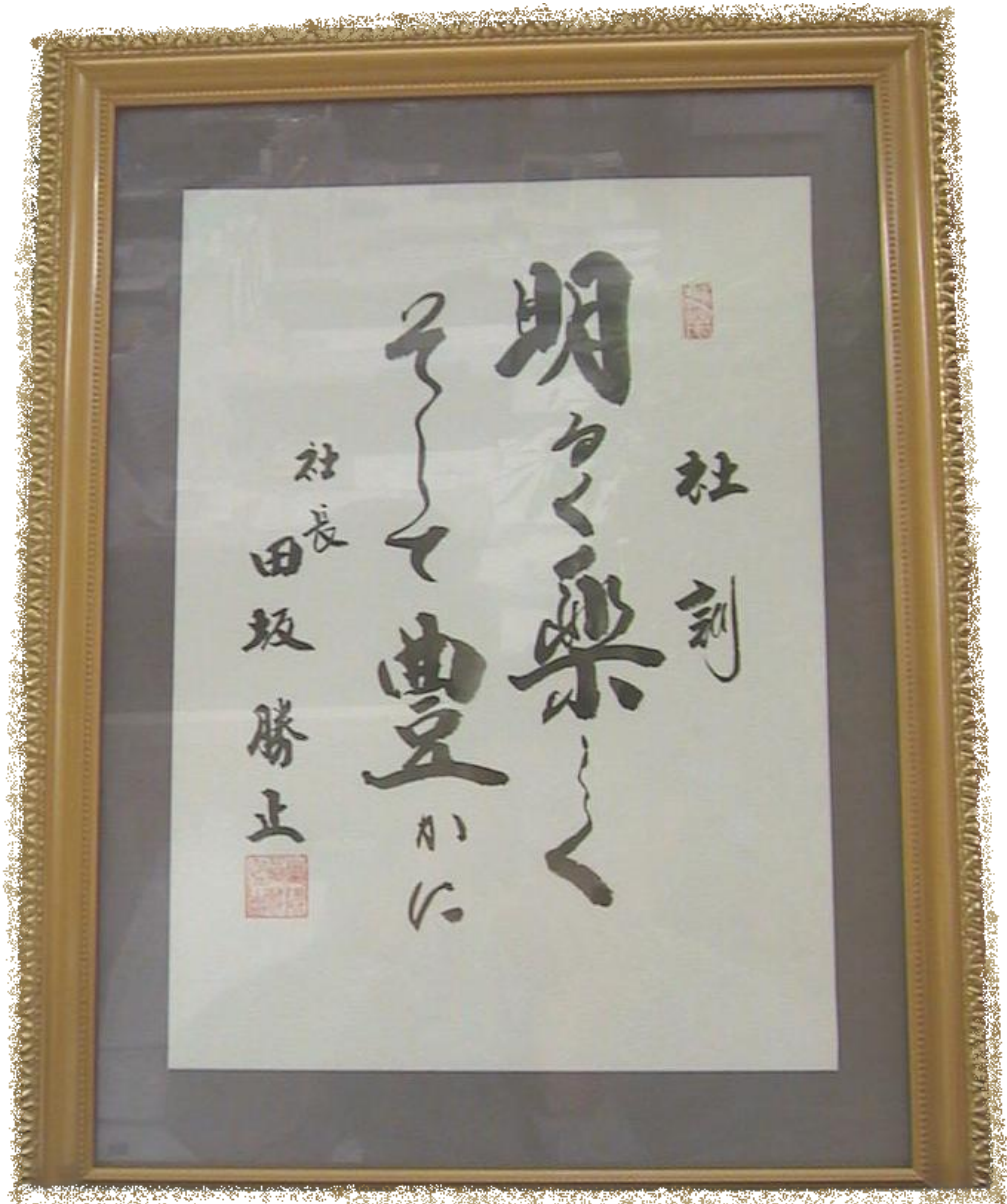 社訓
明るく楽しく
そして豊かに
社長
田坂勝止